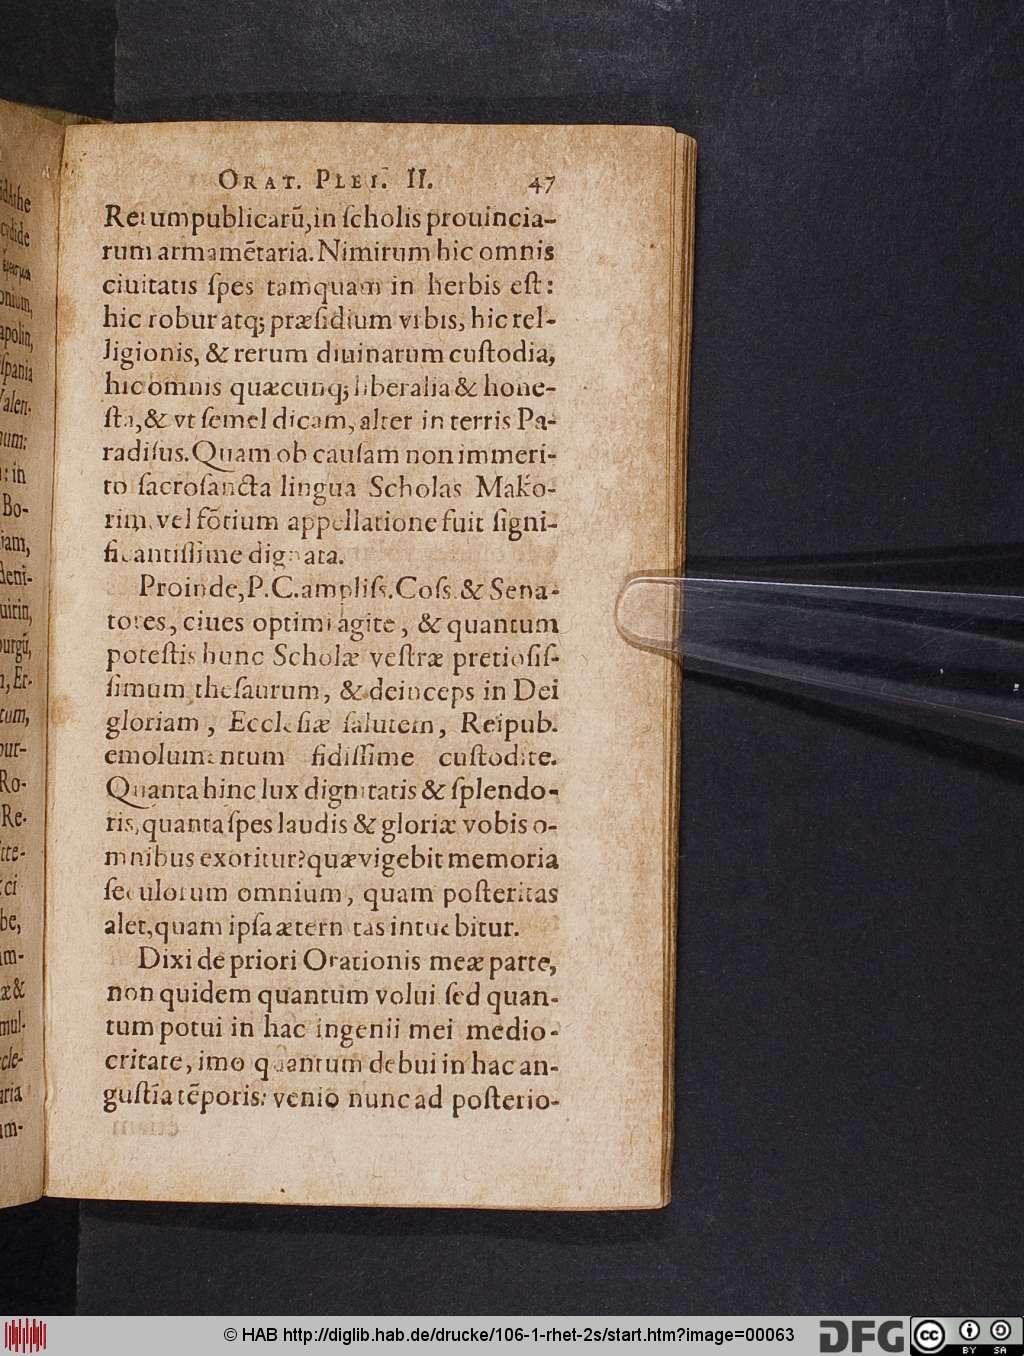 ORAT. PLEI. II. 47
Rerumpublicarū, in ſcholis prouincia-
rum armamētaria. Nimirum hic omnis
ciuitatis ſpes tamquam in herbis eſt:
hic robur atq; præſidium vrbis, hic rel-
ligionis, & rerum diuinarum cuſtodia,
hic omnis quæcunq; liberalia & hone-
ſta, & vt ſemel dicam, alter in terris Pa-
radiſus. Quam ob cauſam non immeri-
to ſacroſancta lingua Scholas Mako-
rim, vel fōtium appellatione fuit ſigni-
ficantiſſime dignata.
Proinde, P.C. ampliſſ. Coſſ. & Sena-
tores, ciues optimi agite, & quantum
poteſtis hunc Scholæ veſtræ pretioſiſ-
ſimum theſaurum, & deinceps in Dei
gloriam, Eccleſiæ ſalutem, Reipub.
emolumentum fidiſſime cuſtodite.
Quanta hinc lux dignitatis & ſplendo-
ris, quanta ſpes laudis & gloriæ vobis o-
mnibus exoritur? quæ vigebit memoria
ſeculorum omnium, quam poſteritas
alet, quam ipſa æternitas intuebitur.
Dixi de priori Orationis meæ parte,
non quidem quantum volui ſed quan-
tum potui in hac ingenii mei medio-
critate, imo quantum debui in hac an-
guſtia tēporis: venio nunc ad poſterio-
© HAB http://diglib.hab.de/drucke/106-1-rhet-2s/start.htm?image=00063
DFG
cc BY SA